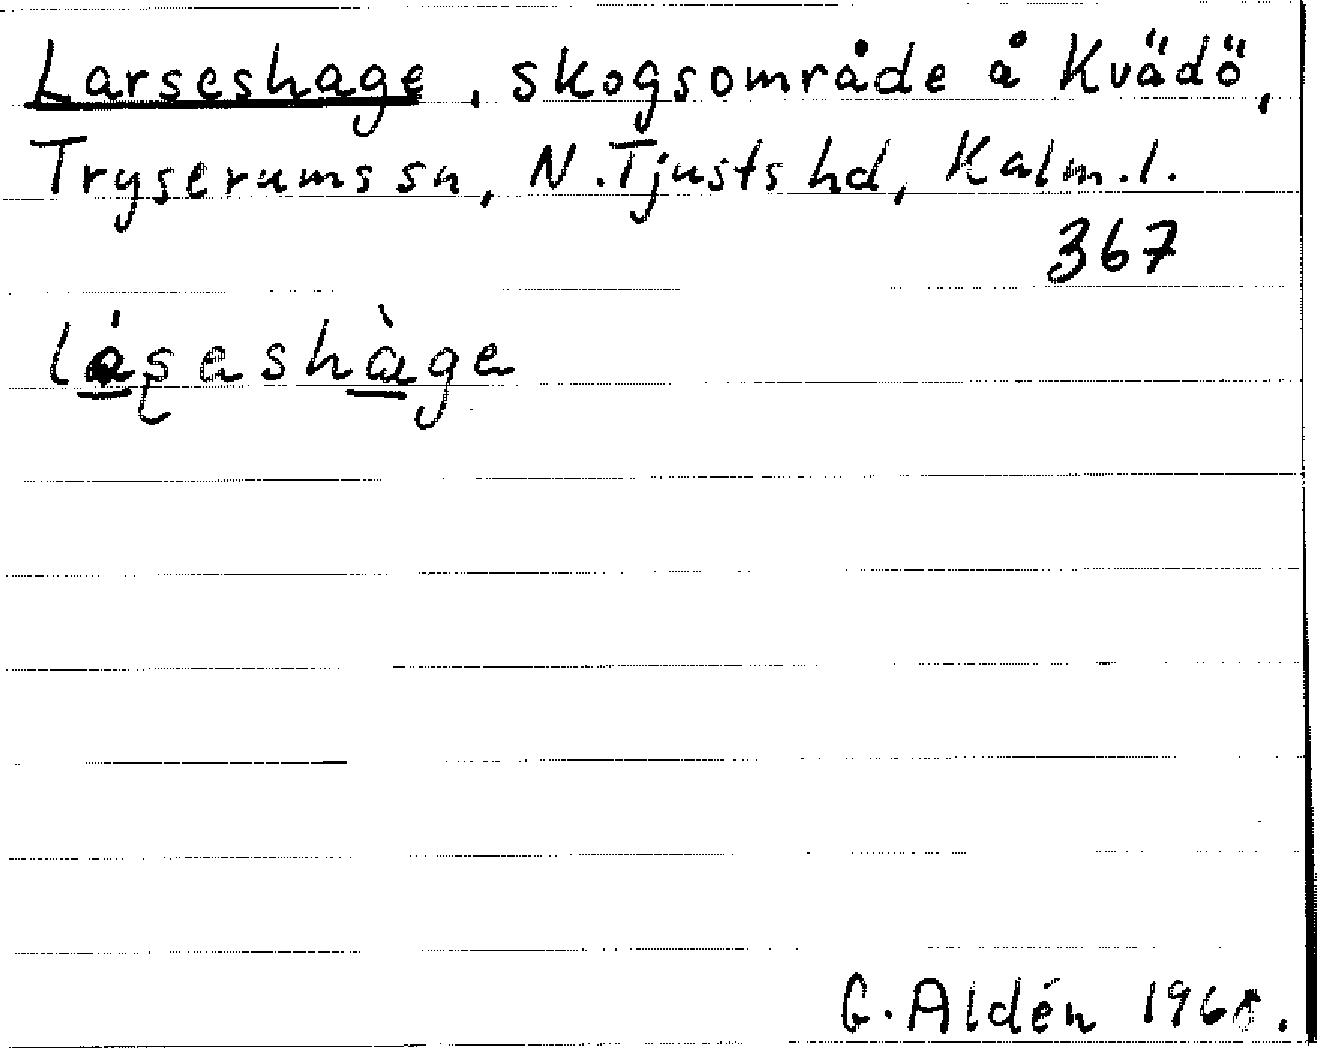 Larseshage, skogsområde å Kvädö,
Tryserums sn, N. Tjusts hd, Kalm. l.
367
lás̨eshàge
G. Aldén